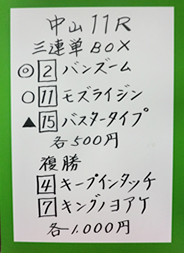 中山11R
三連単BOX
◎2 バンズーム
○11 モズライジン
▲15 バスタータイプ
各500円
複勝
4 キープインタッチ
7 キングノヨアケ
各1,000円